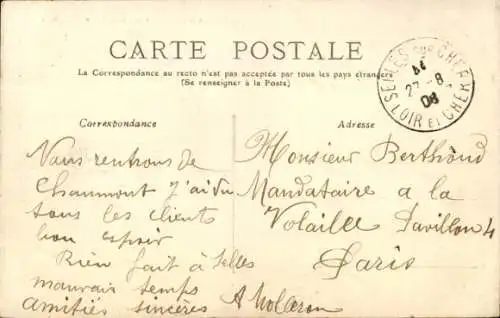 CARTE POSTALE
La Correspondance au recto n'est pas acceptée par tous les pays étrangers
(Se renseigner à la Poste)
SELLES SUR CHER
27-8
08
LOIR ET CHER
Correspondance
Nous rentrons de
Chaumont J'ai vu
tous les clients
bon espoir
Rien fait à Selles
mauvais temps
amitiés sincères
Adresse
Monsieur Berthond
Mandataire a la
Volaille Pavillon 4
Paris